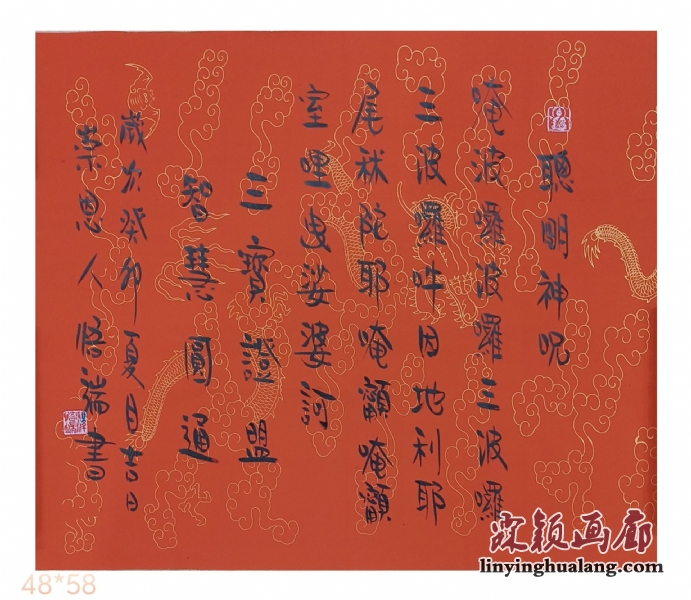 聰明神呪
唵波囉波囉三波囉
三波囉吽因地利耶
尾秫陀耶唵顲唵顲
室哩曳娑婆訶
三寶證盟
智慧圓通
歲次癸卯夏月吉日
榮恩人悟瑞書
霖颖画廊
linyinghualang.com
48*58